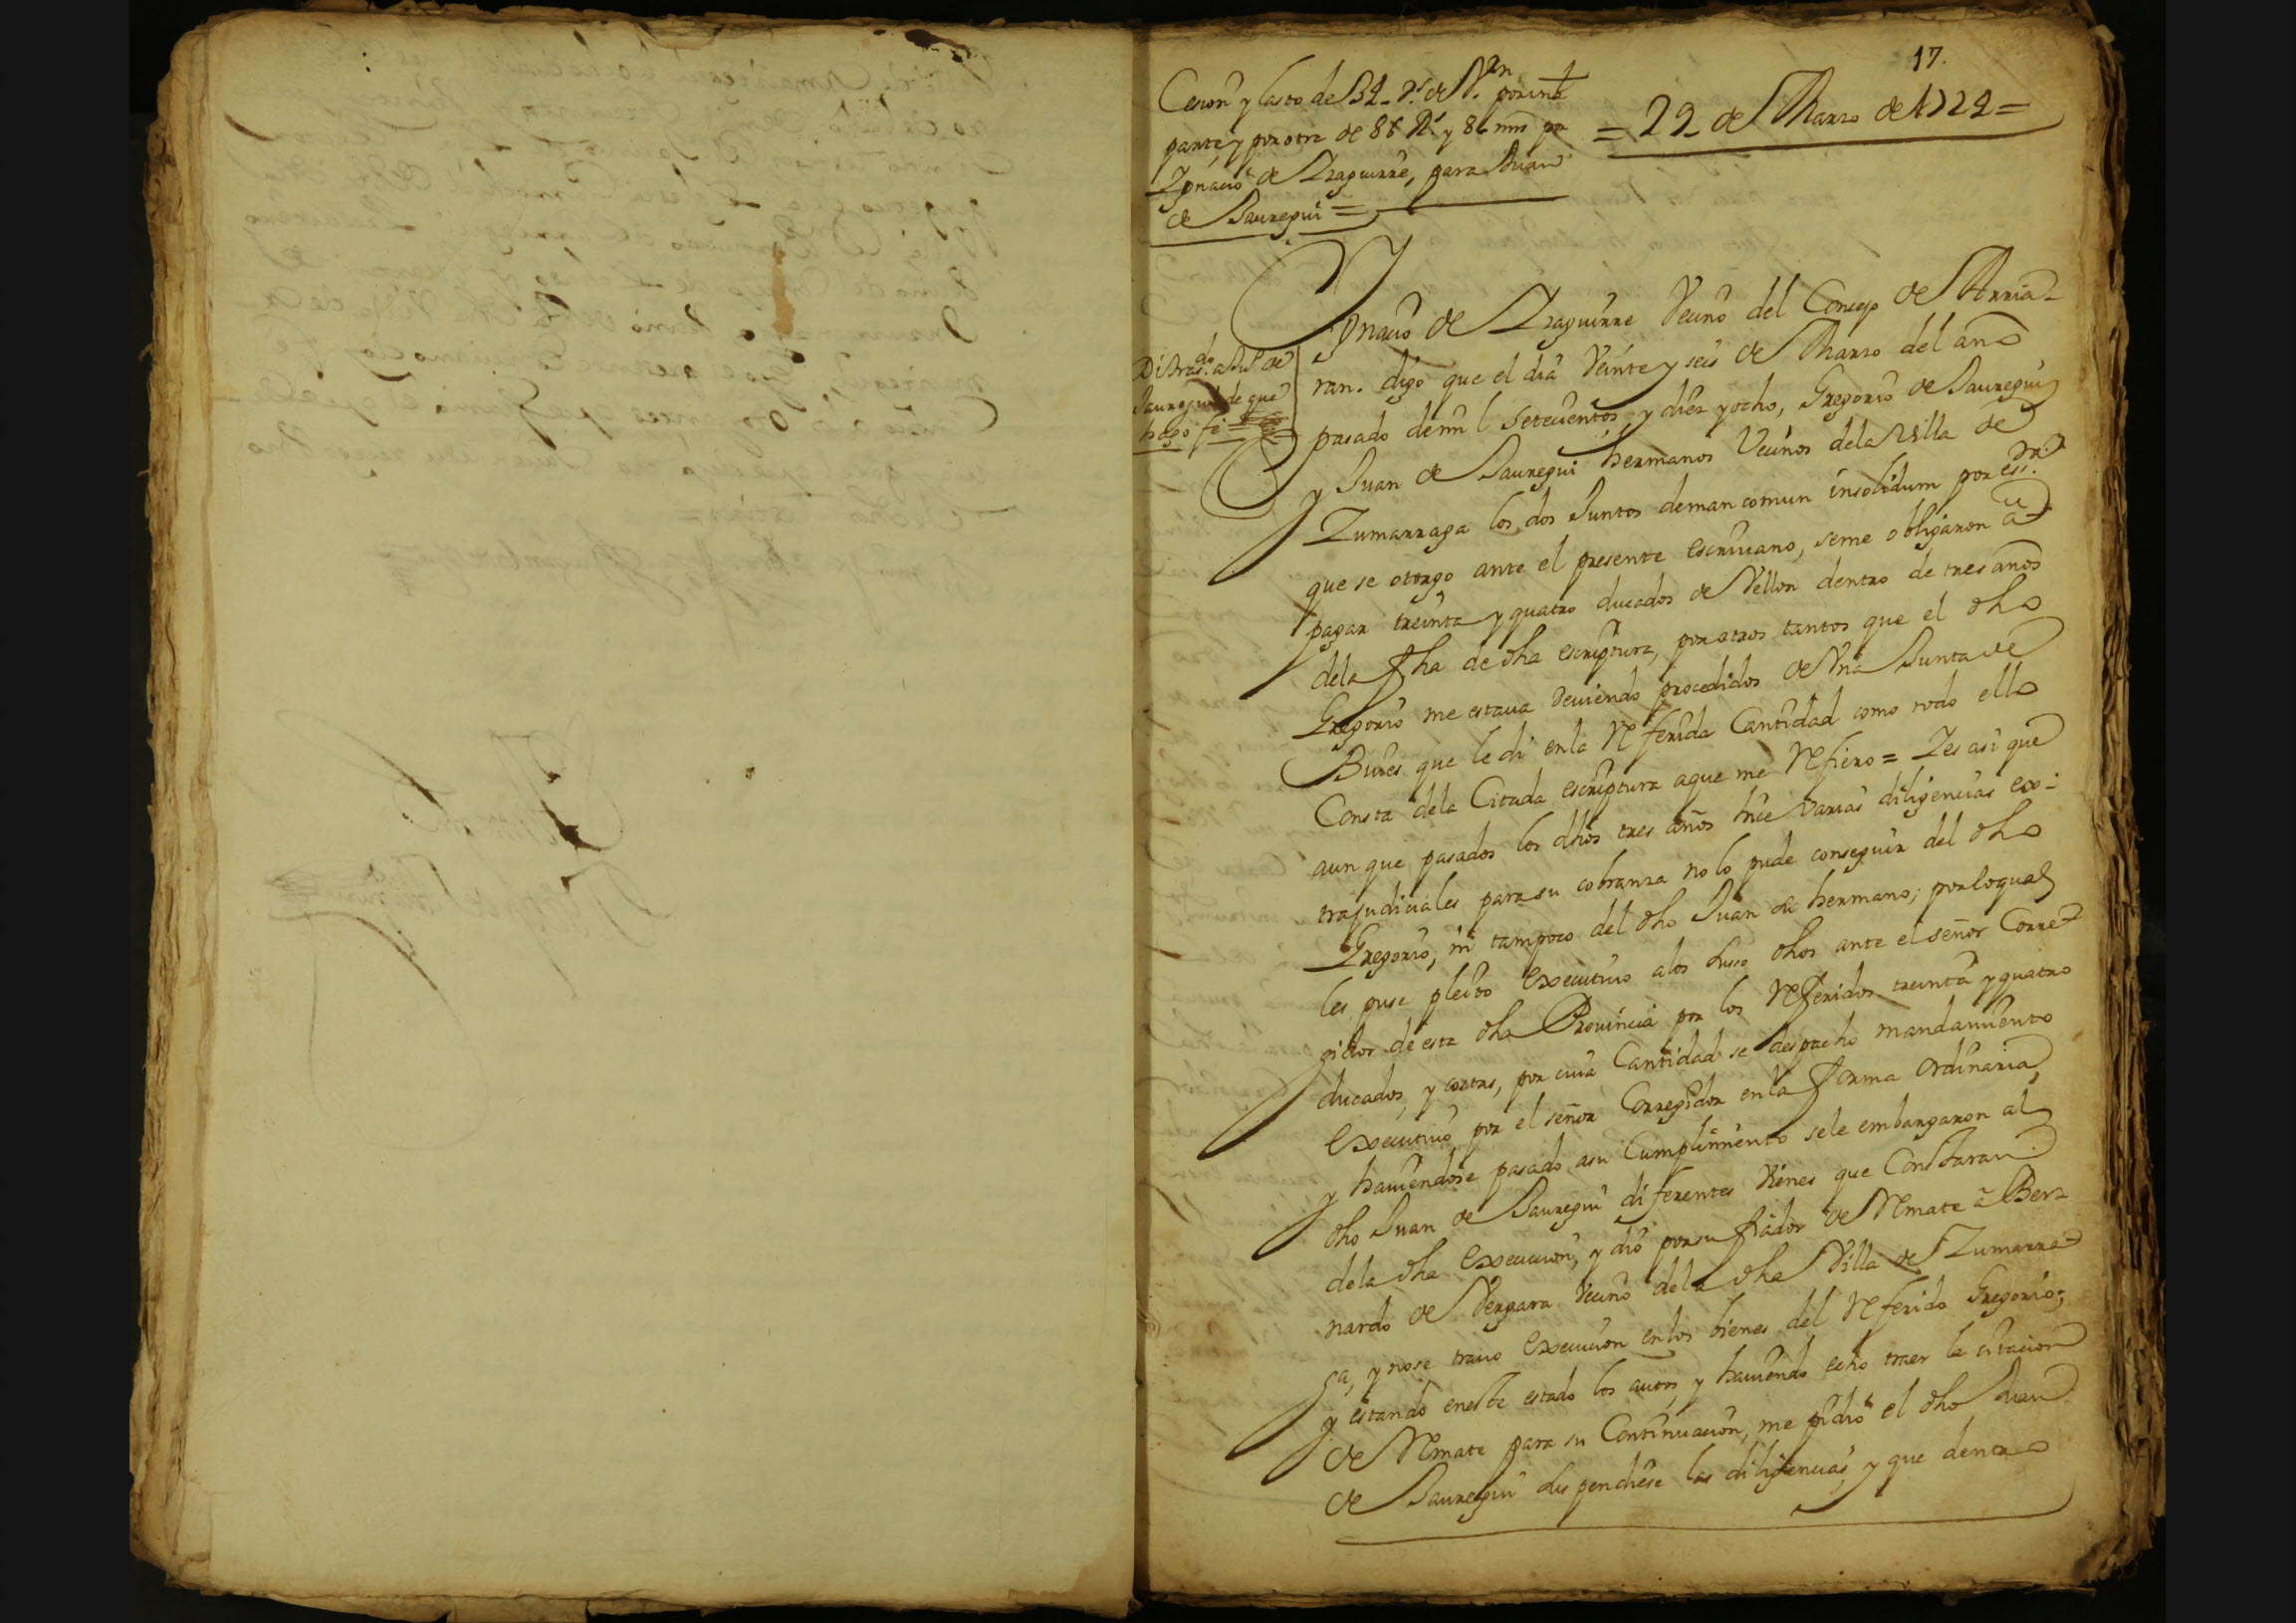 17.
Cesion y lasto de 34 ds de Vn por una
parte y por otra de 86 Rs y 8 mrs por
Ygnacio de Yzaguirre, para Juan
de Jauregui =
= 22 de Marzo de 1722 =
Di tras.do a Ju.º de
Jauregui de que
hago fe =
Ygnacio de Yzaguirre Vecino del Concejo de Arria-
ran. digo que el dia Veinte y seis de Marzo del año
pasado de mil setecientos y diez y ocho, Gregorio de Jauregui
y Juan de Jauregui hermanos Vecinos dela Villa de
Zumarraga los dos Juntos demancomun insolidum por ess.ra
que se otorgo ante el presente escriuano, seme obligaron a
pagar treinta y quatro ducados de Vellon dentro de tres años
dela fha de dha escriptura, por otros tantos que el dho
Gregorio me estaua deuiendo procedidos de Vna Junta de
Bueies que le di enla Referida Cantidad como todo ello
Consta dela Citada escriptura aque me Refiero = Yes asi que
aun que pasados los dhos tres años hice varias diligencias ex-
trajudiciales para su cobranza no lo pude conseguir del dho
Gregorio, ni tampoco del dho Juan su hermano; por loqual
les puse pleito executiuo alos suso dhos ante el señor Corre-
gidor de esta dha Prouincia por los Referidos treinta y quatro
ducados, y costas, por cuia Cantidad se despacho mandamiento
executiuo por el señor Corregidor enla forma ordinaria,
y hauiendose pasado asu Cumplimiento sele embargaron al
dho Juan de Jauregui diferentes Vienes que Constaran
dela dha execucion, y dio porsu fiador de Remate a Ber-
nardo de Vergara Vecino dela dha Villa de Zumarra-
ga, y nose trauo execucion enlos bienes del Referido Gregorio;
y estando eneste estado los autos, y hauiendo echo traer la citacion
de Remate para su Continuacion, me pidio el dho Juan
de Jauregui suspendiese las diligencias, y que dentro